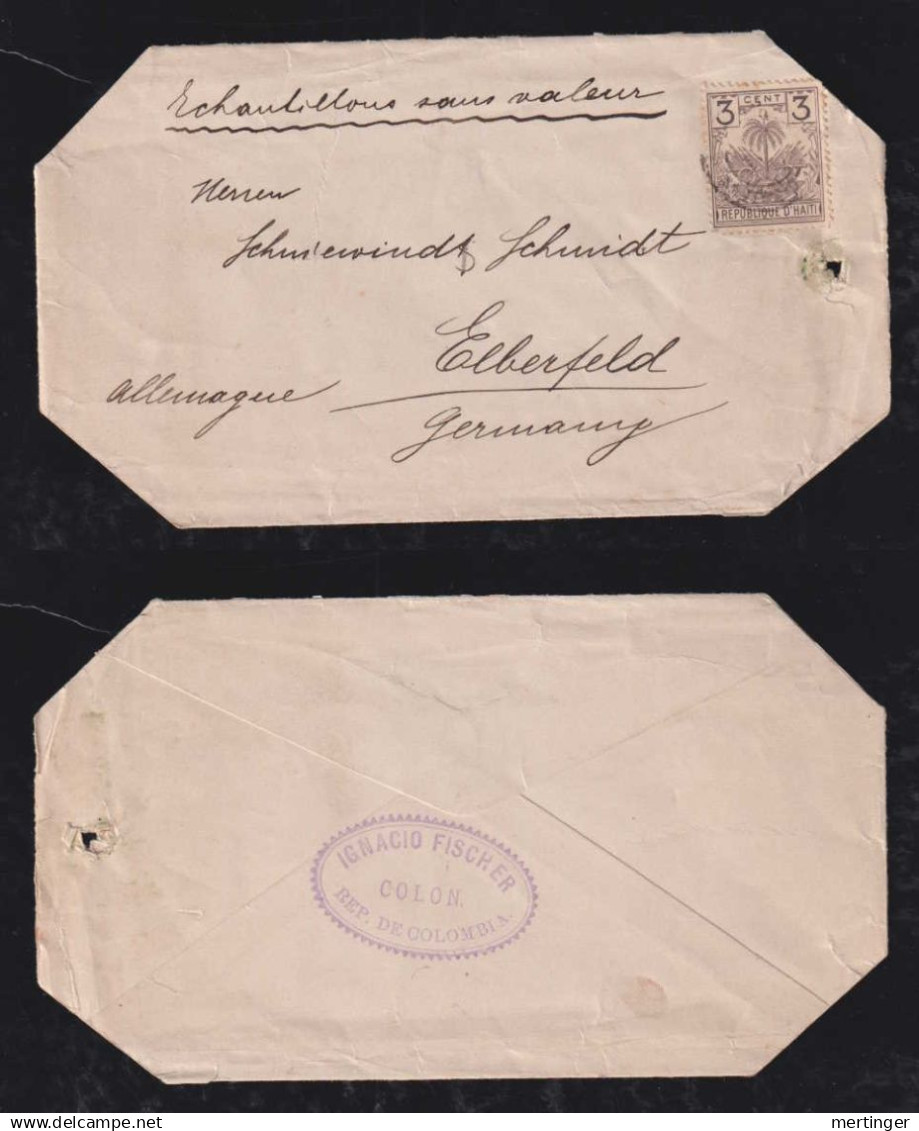 Echantillons sans valeur
3 CENT 3
REPUBLIQUE D'HAITI
Herren
Schniewindt & Schmidt
Elberfeld
allemague
Germany
IGNACIO FISCHER
COLON.
REP. DE COLOMBIA.
mertinger